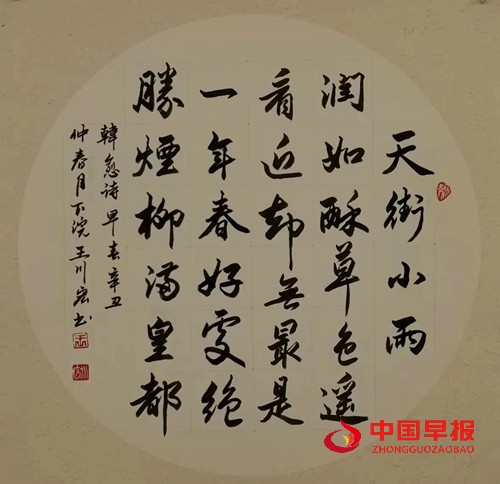 天街小雨
潤如酥草色遥
看近却無最是
一年春好處絶
勝煙柳滿皇都
韓愈詩早春辛丑
仲春月下浣王川宏书
中国早报
ZHONGGUOZAOBAO